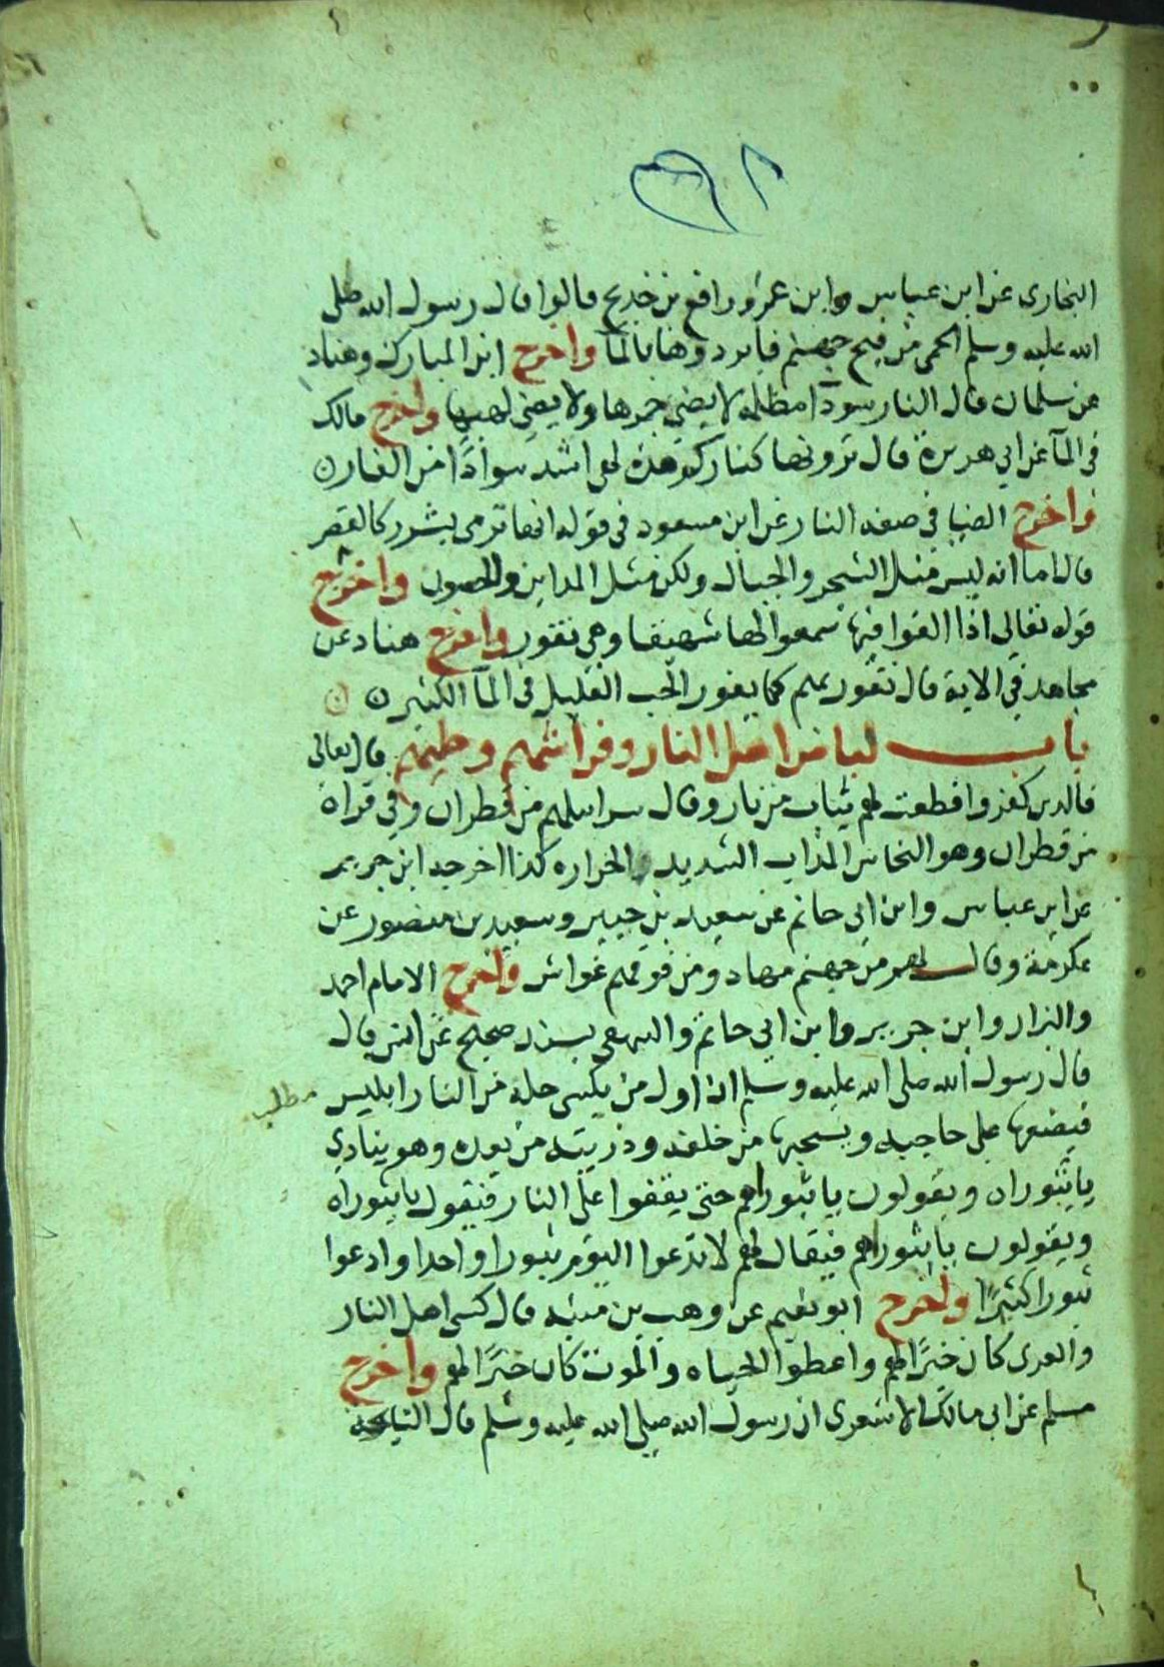 البخارى عن ابن عباس وابن عمر ورافع بن خديج قالوا قال رسول الله صلى
الله عليه وسلم الحمى من فيح جهنم فابردوها بالمآ واخرج ابن المبارك وهناد
عن سلمان قال النار سودآ مظلمة لا يضئ جمرها ولا يضئ لهبها واخرج مالك
فى المآ عن ابي هريرة قال ترونها كناركم هذه لهى اشد سوادًا من القار ن
واخرج الضيا فى صفة النار عن ابن مسعود فى قوله انها ترمى بشرر كالقصر
قال اما انه ليس مثل الشجر والجبال ولكن مثل المداين والحصون واخرج
قوله تعالى اذا القوا فيها سمعوا لها شهيقا وهى تفور واخرج هناد عن
مجاهد في الاية قال تفور بهم كما يفور الحب القليل فى المآ الكثير ن ن
باب لباس اهل النار وفراشهم وحليهم قال تعالى
فالدين كفروا قطعت لهم ثياب من نار وقال سرابيلهم من قطران وفي قراة
من قطران وهو النحاس المذاب الشديد الحراره كذا اخرجه ابن جرير
عن ابن عباس وابن ابي حاتم عن سعيد بن جبير وسعيد بن منصور عن
عكرمة وقال لهم من جهنم مهاد ومن فوقهم غواش واخرج الامام احمد
والبزار وابن جرير وابن ابي حاتم والبيهقى بسند صحيح عن انس قال
قال رسول الله صلى الله عليه وسلم ان اول من يكسى حلة من النار ابليس
مطلب
فيضعها على حاجبيه ويسحبها من خلفه وذريته من بعده وهو ينادي
ياثبوراه ويقولون ياثبوراهم حتى يقفوا على النار فيقول ياثبوراه
ويقولون ياثبوراهم فيقال لهم لا تدعوا اليوم ثبورا واحدا وادعوا
ثبورا كثيرًا واخرج ابو نعيم عن وهب بن منبه قال كسى اهل النار
والعرى كان خيرًا لهم واعطوا الحياه والموت كان خيرًا لهم واخرج
مسلم عن ابى مالك الاشعرى ان رسول الله صلى الله عليه وسلم قال النايحة